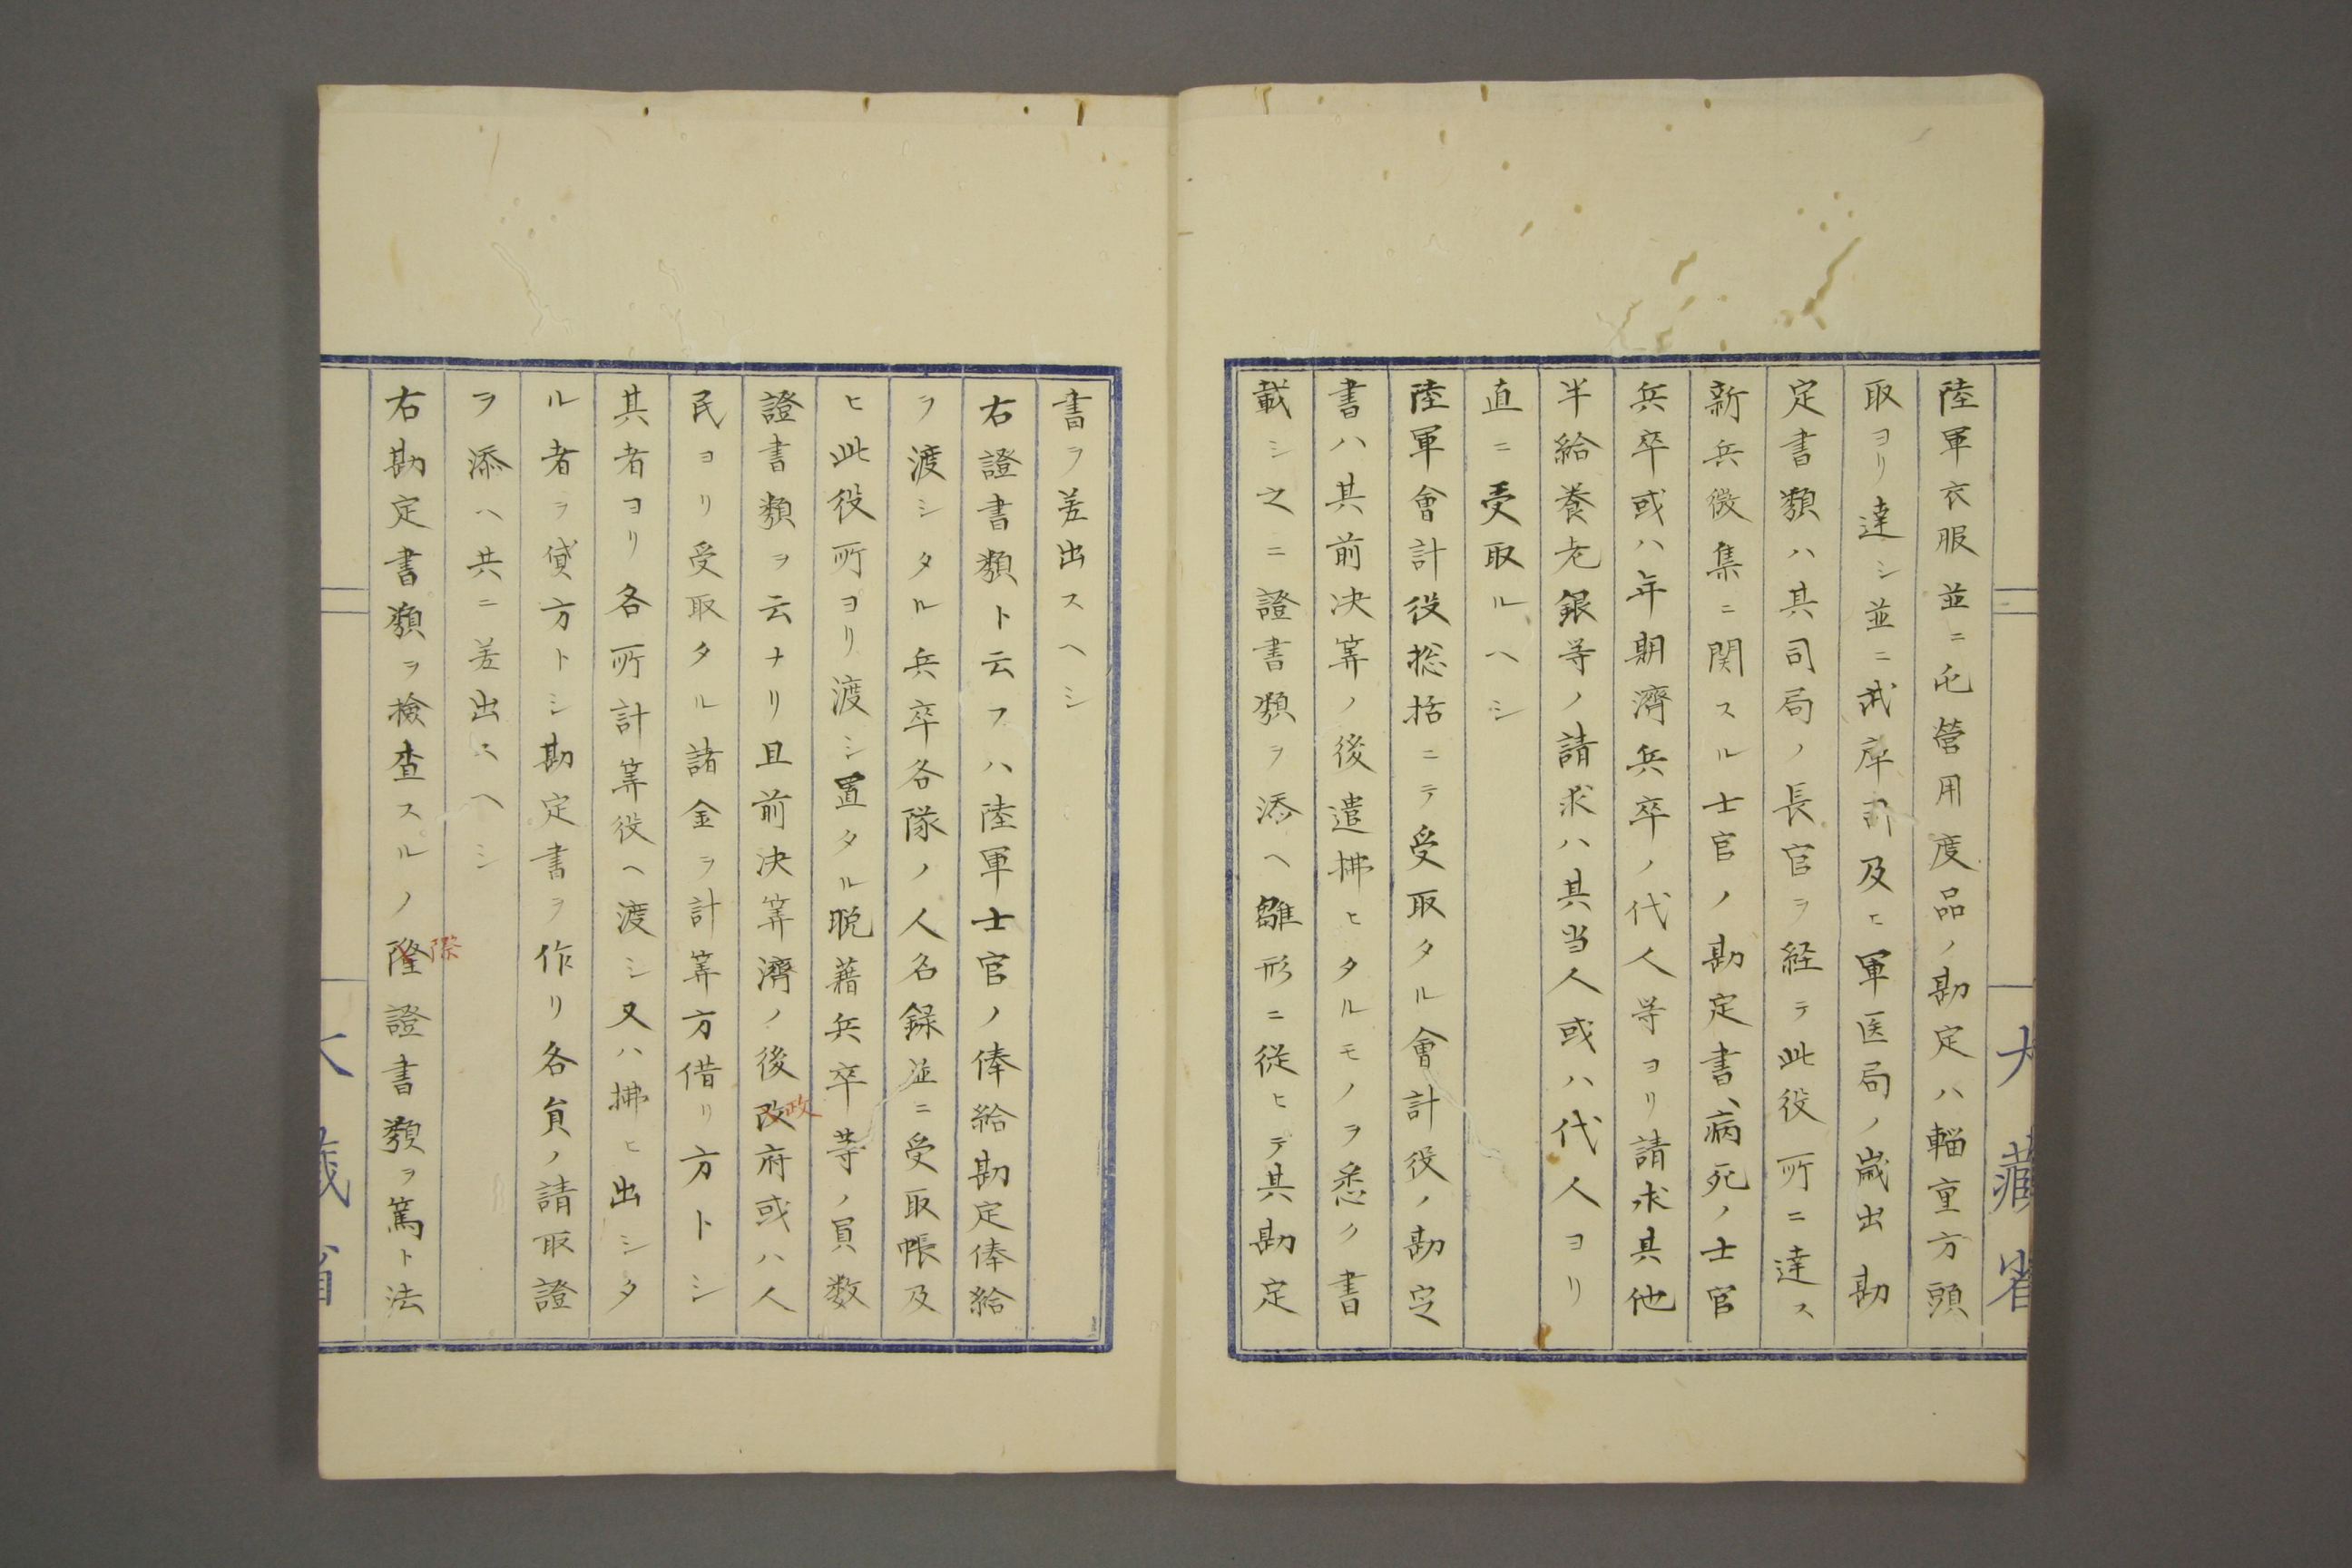 陸軍衣服並ニ屯営用度品ノ勘定ハ輜重方頭
取ヨリ達シ並ニ武庫司及ヒ軍医局ノ歳出勘
定書類ハ其司局ノ長官ヲ経テ此役所ニ達ス
新兵徴集ニ関スル士官ノ勘定書、病死ノ士官
兵卒或ハ年期濟兵卒ノ代人等ヨリ請求其他
半給養老銀等ノ請求ハ其当人或ハ代人ヨリ
直ニ受取ルヘシ
陸軍會計役総括ニテ受取タル會計役ノ勘定
書ハ其前决筭ノ後遣拂ヒタルモノヲ悉ク書
載シ之ニ證書類ヲ添ヘ雛形ニ従ヒテ其勘定
大藏省
書ヲ差出スヘシ
右證書類ト云フハ陸軍士官ノ俸給勘定俸給
ヲ渡シタル兵卒各隊ノ人名録並ニ受取帳及
ヒ此役所ヨリ渡シ置タル脱藉兵卒等ノ員数
證書類ヲ云ナリ且前决筭濟ノ後改府或ハ人
政
民ヨリ受取タル諸金ヲ計筭方借リ方トシ
其者ヨリ各所計筭役ヘ渡シ又ハ拂ヒ出シタ
ル者ヲ貸方トシ勘定書ヲ作リ各員ノ請取證
ヲ添ヘ共ニ差出スヘシ
右勘定書類ヲ檢査スルノ隆證書類ヲ篤ト法
際
大藏省